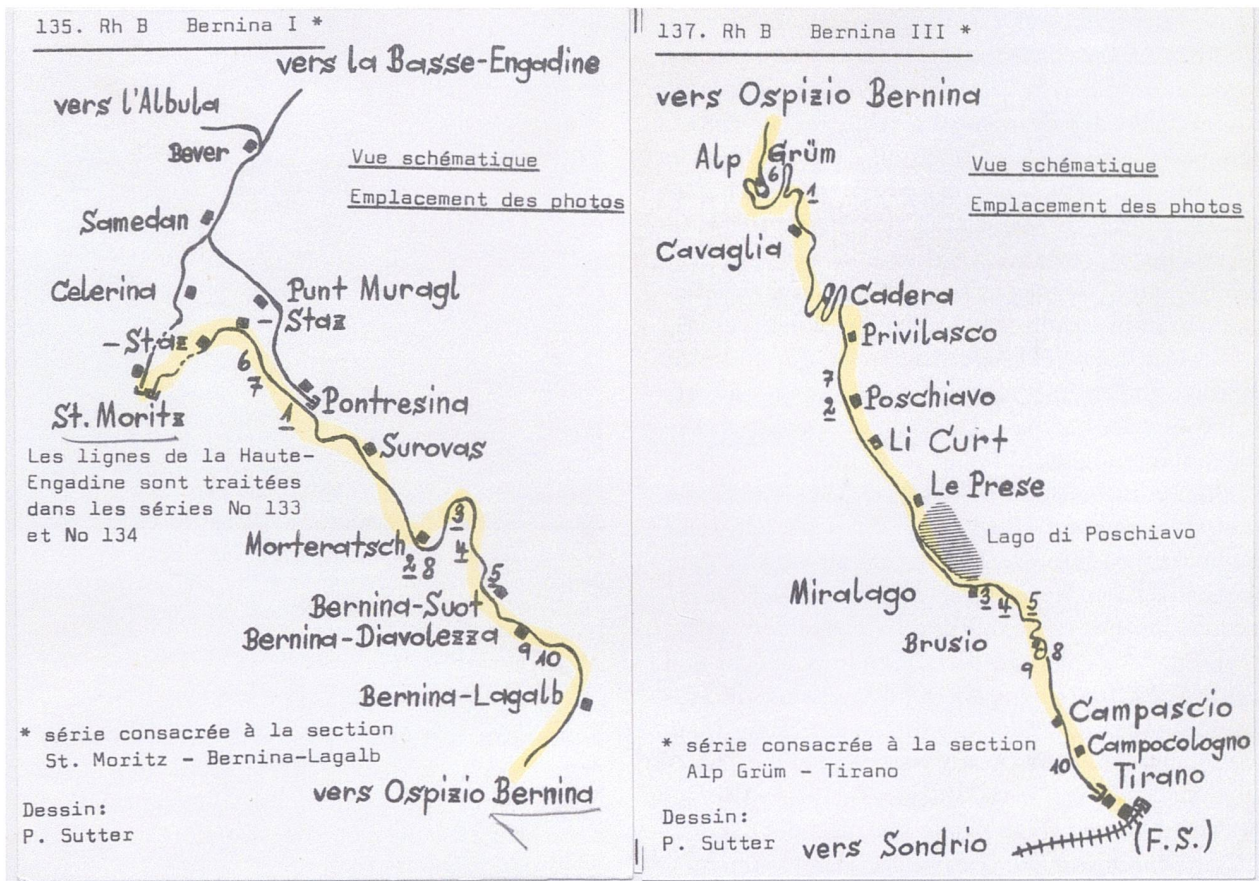 135. Rh B Bernina I *
vers la Basse-Engadine
vers l'Albula
Bever
Vue schématique
Emplacement des photos
Samedan
Celerina
Punt Muragl
- Staz
- Staz
6
7
1
St. Moritz
Pontresina
Surovas
Les lignes de la Haute-
Engadine sont traitées
dans les séries No 133
et No 134
3
4
Morteratsch
2 8
5
Bernina-Suot
Bernina-Diavolezza
9 10
Bernina-Lagalb
* série consacrée à la section
St. Moritz - Bernina-Lagalb
vers Ospizio Bernina
Dessin:
P. Sutter
137. Rh B Bernina III *
vers Ospizio Bernina
Alp Grüm
6
1
Vue schématique
Emplacement des photos
Cavaglia
Cadera
Privilasco
7
2
Poschiavo
Li Curt
Le Prese
Lago di Poschiavo
Miralago
3 4 5
Brusio
8
9
Campascio
Campocologno
10
Tirano
* série consacrée à la section
Alp Grüm - Tirano
Dessin:
P. Sutter
vers Sondrio
(F.S.)